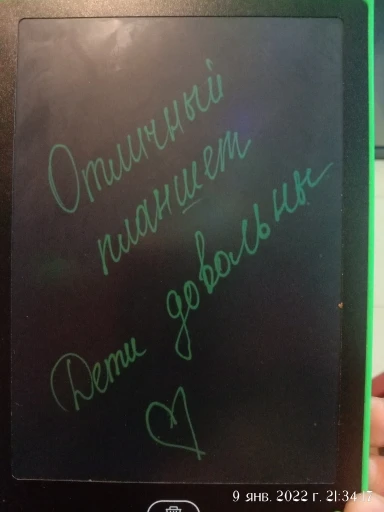 Отличный
планшет
Дети довольны
9 янв. 2022 г. 21:34:17